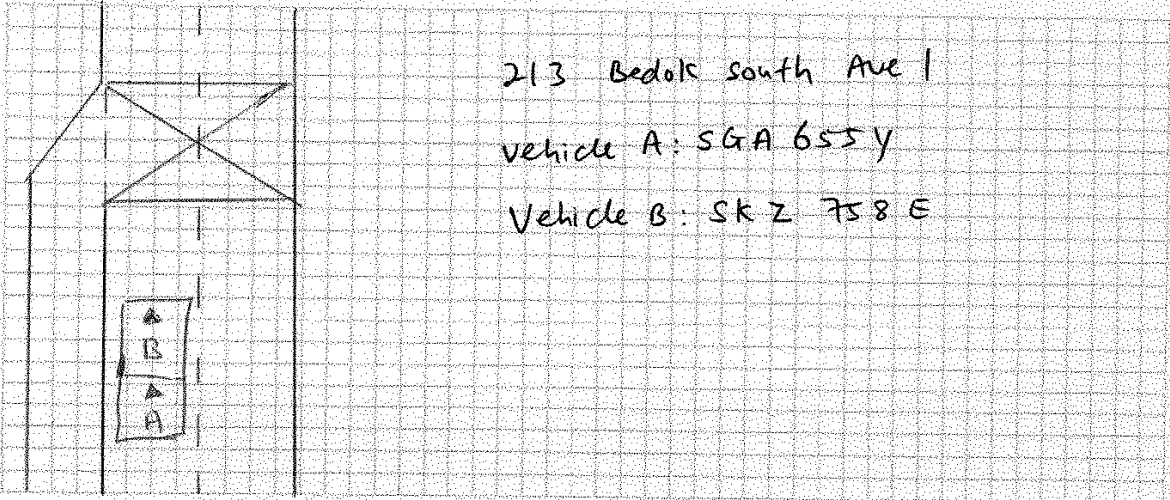 213 Bedok south Ave 1
vehicle A: SGA 655Y
Vehicle B: SKZ 758E
B
A